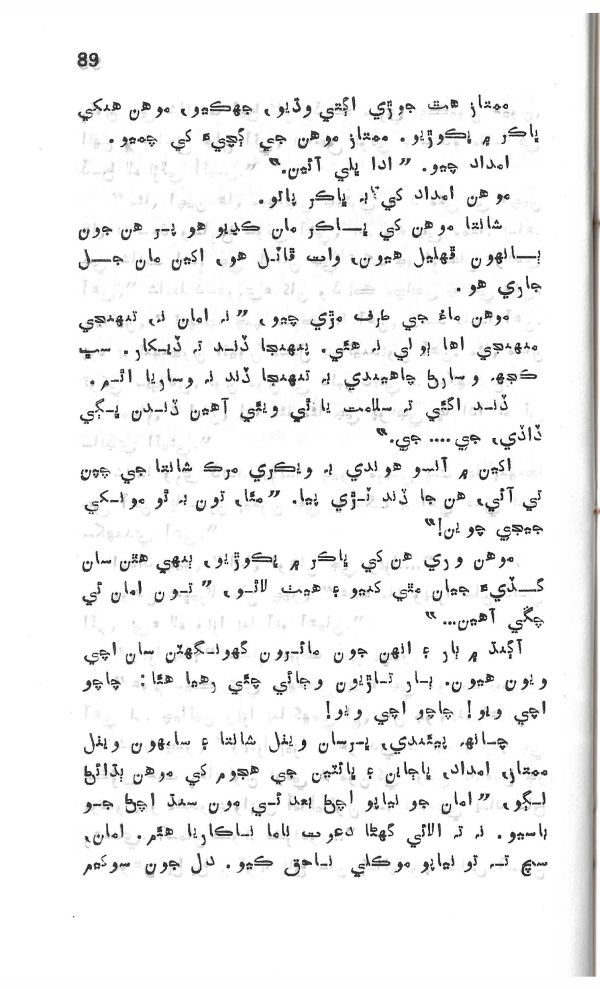 89
ممتاز هٿ جوڙي اڳتي وڌيو، جهڪيو، موهن هنکي
ڀاڪر ۾ ڀڪوڙيو. ممتاز موهن جي ڳچيءَ کي چميو.
امداد چيو. ”ادا ڀلي آئين.“
موهن امداد کي بہ ڀاڪر پائو.
شانتا موهن کي ڀاڪر مان ڪڍيو هو پر هن جون
ٻانهون ڦهليل هيون، وات ڦاٽل هو، اکين مان جل
جاري هو.
موهن ماءُ جي طرف مڙي چيو، ”نہ امان نہ، تنهنجي
منهنجي اها ٻولي نہ هئي. پنهنجا ڏند تہ ڏيکار. سڀ
ڪجهہ وسارڻ چاهيندي بہ تنهنجا ڏند نہ وساريا اٿم.
ڏند اڳئي تہ سلامت پائي ويئي آهين ڏندن ڀڳي
ڏاڏي، جي.... جي.“
اکين ۾ آنسو هوندي بہ ويڪري مرڪ شانتا جي چپن
تي آئي، هن جا ڏند نڙي پيا. ”مٺا، تون بہ ٿو مونکي
جيجي چوين!“
موهن وري هن کي ڀاڪر ۾ ڀڪوڙيو، ٻنهي هٿن سان
گڏيءَ جيان مٿي کنيو ۽ هيٺ لاٿو، ”تون امان ئي
چڱي آهين...“
آڳنڌ ۾ ٻار ۽ انهن جون مائرون گهونگهٽن سان اچي
ويون هيون. ٻار تاڙيون وڄائي چئي رهيا هئا: چاچو
اچي ويو! چاچو اچي ويو!
چانهہ پيئندي، پرسان ويٺل شانتا ۽ سامهون ويٺل
ممتاز، امداد، ڀاڄاين ۽ ڀائٽين جي هجوم کي موهن ٻڌائڻ
لڳو، ”امان جو نياپو اچڻ بعد ئي مون سنڌ اچڻ جو
باسيو. نہ تہ الائي گهڻا دعوت ناما ناڪاريا هئم. امان،
سچ تہ تو نياپو موڪلي ناحق ڪيو. دل جون سوکيم